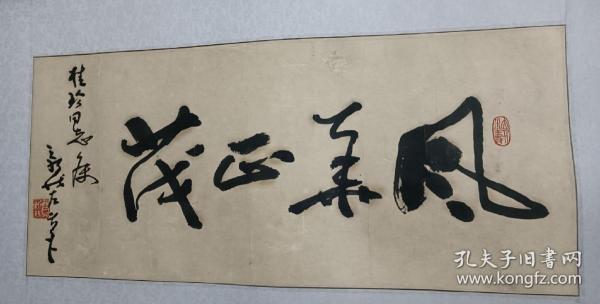 風華正茂
桂珍同志属
孔夫子旧書网
www.kongfz.com